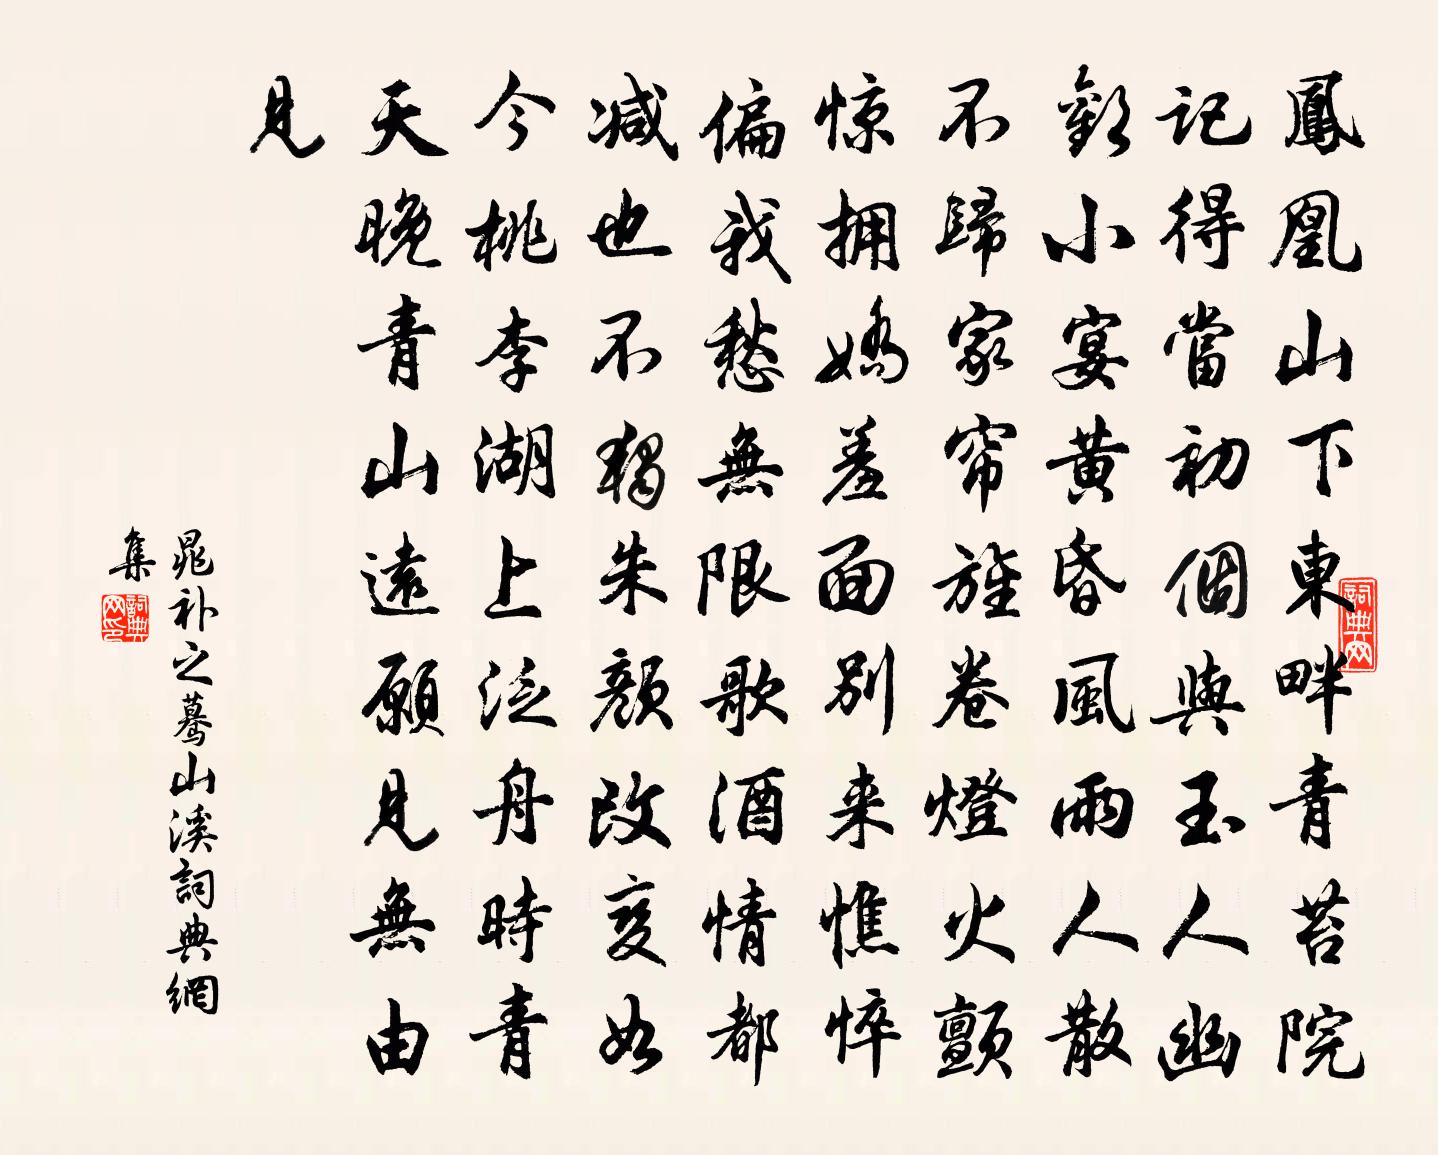 鳳凰山下東畔青苔院
記得當初個與玉人幽
歡小宴黄昏風雨人散
不歸家帘旌卷燈火顫
惊拥嬌羞面别来憔悴
偏我愁無限歌酒情都
减也不獨朱顔改变如
今桃李湖上泛舟時青
天晚青山遠願見無由
見
晁补之蓦山溪詞典網
集
詞典网
詞典网印